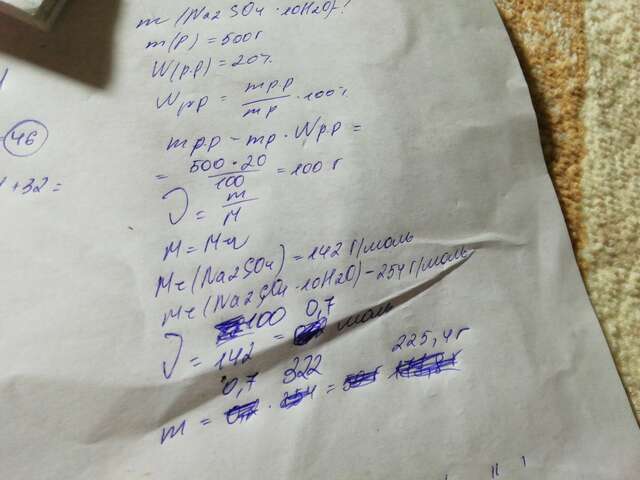 m (Na2SO4 · 10H2O)?
m(р) = 500г
W(р.р) = 20%
Wрр = mр.р / mр · 100%
mр.р - mр · Wр.р =
= 500 · 20 / 100 = 100 г
46
+32 =
J = m / M
M = Mr
Mr (Na2SO4) = 142 г/моль
Mr (Na2SO4 · 10H2O) - 254 г/моль
J = 100 / 142 = 0,7 моль
m = 0,7 · 322 = 225,4г